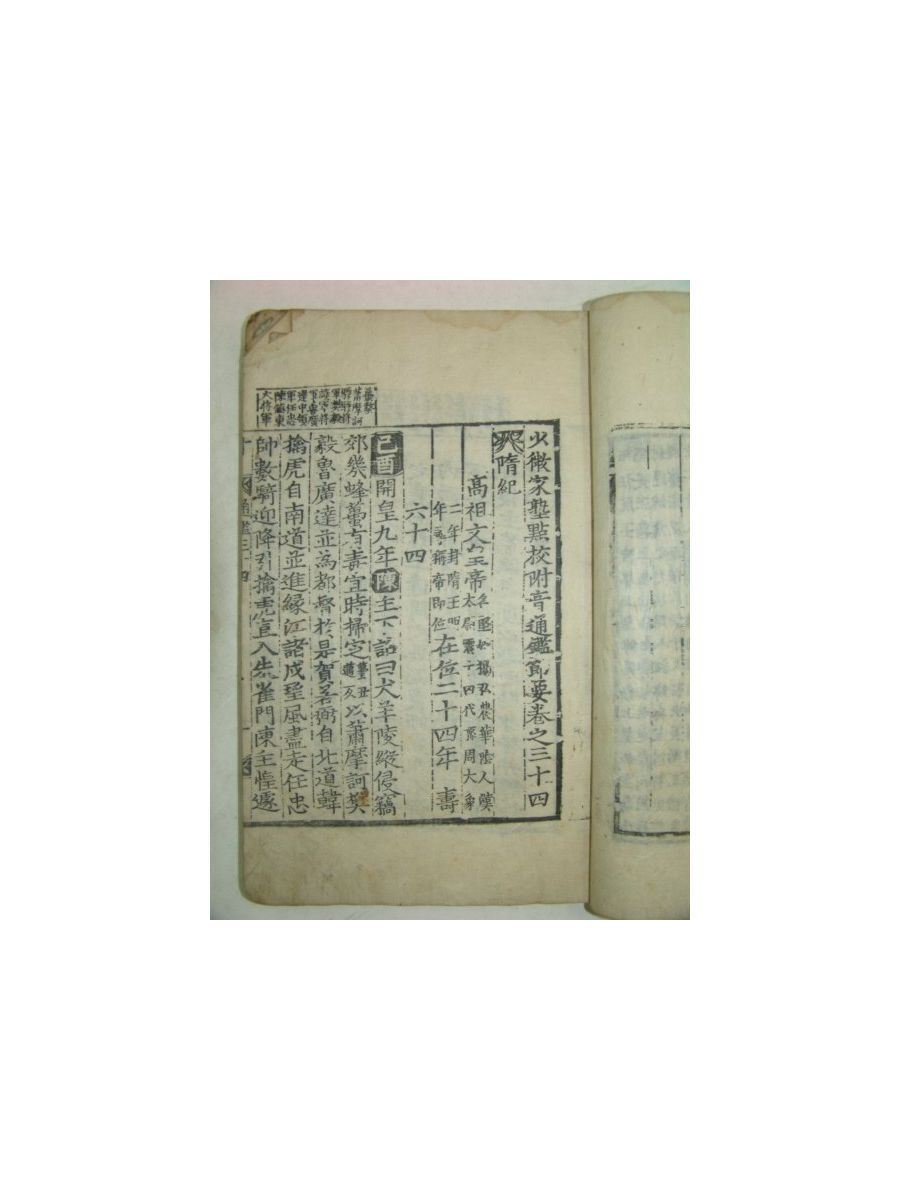 少微家塾點校附音通鑑節要卷之三十四
隋紀
高祖文皇帝名堅姓楊弘農華陰人漢太尉震十四代孫周大象
二年封隋王明年稱帝即位在位二十四年 壽
六十四
己酉開皇九年陳主下詔曰犬羊陵縱侵竊
郊畿蜂蠆有毒宜時掃定以蕭摩訶樊
毅魯廣達並為都督於是賀若弼自北道韓
擒虎自南道並進緣江諸戍望風盡走任忠
帥數騎迎降引擒虎直入朱雀門陳主惶遽
通鑑三十四
蕭摩訶
大將軍